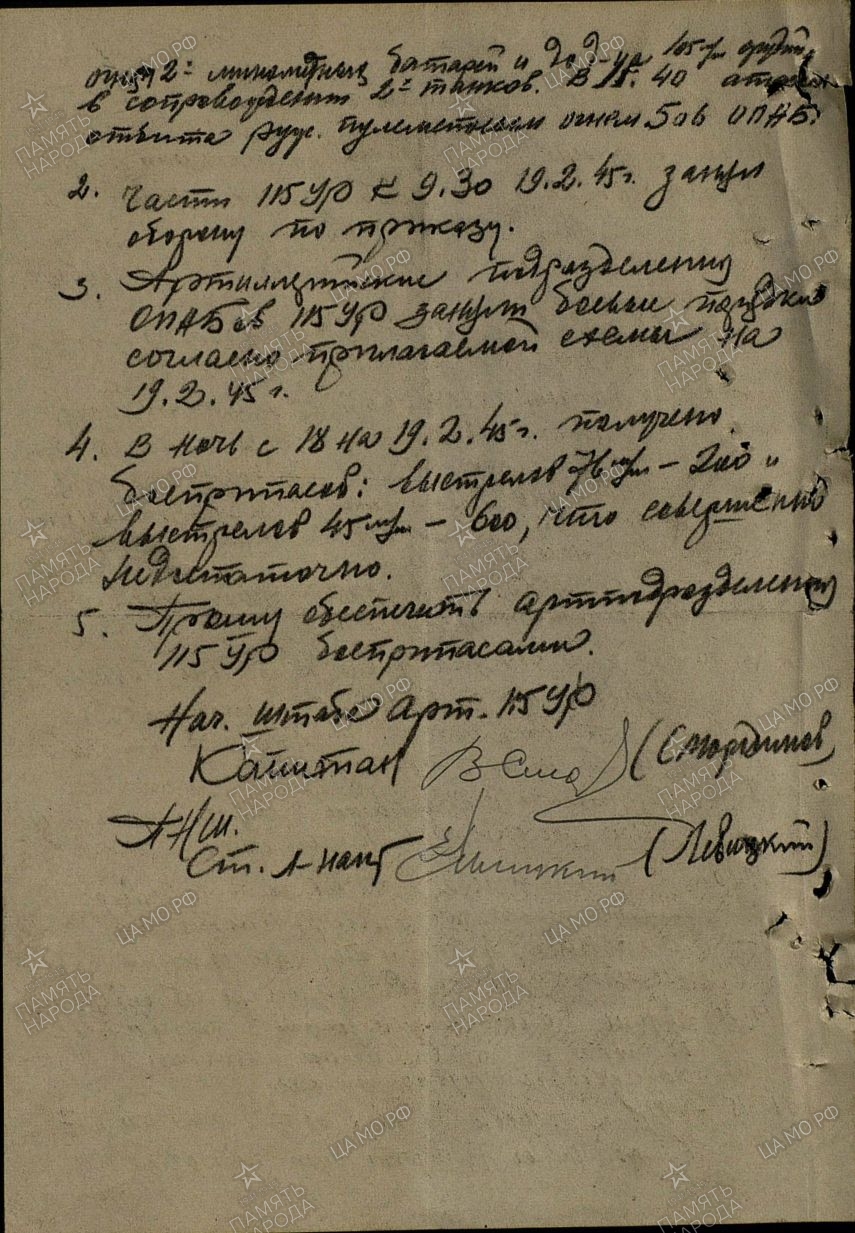 огня 2х минометных батарей и до д-на 105 м/м орудий
в сопровождении 2х танков. В 15.40 атака
отбита руж. пулеметным огнем 506 ОПАБ.
2. Части 115 УР к 9.30 19.2.45г. заняли
оборону по приказу.
3. Артиллерийские подразделения
ОПАБов 115 УР заняли боевые порядки
согласно прилагаемой схемы на
19.2.45г.
4. В ночь с 18 на 19.2.45г. получено
боеприпасов: выстрелов 76 м/м – 200 и
выстрелов 45 м/м – 600, что совершенно
недостаточно.
5. Прошу обеспечить артподразделения
115 УР боеприпасами.
Нач. штаба Арт. 115 УР
Капитан (Смординов)
ПНШ.
Ст. л-нант (Левицкий)
ПАМЯТЬ НАРОДА
ЦА МО РФ